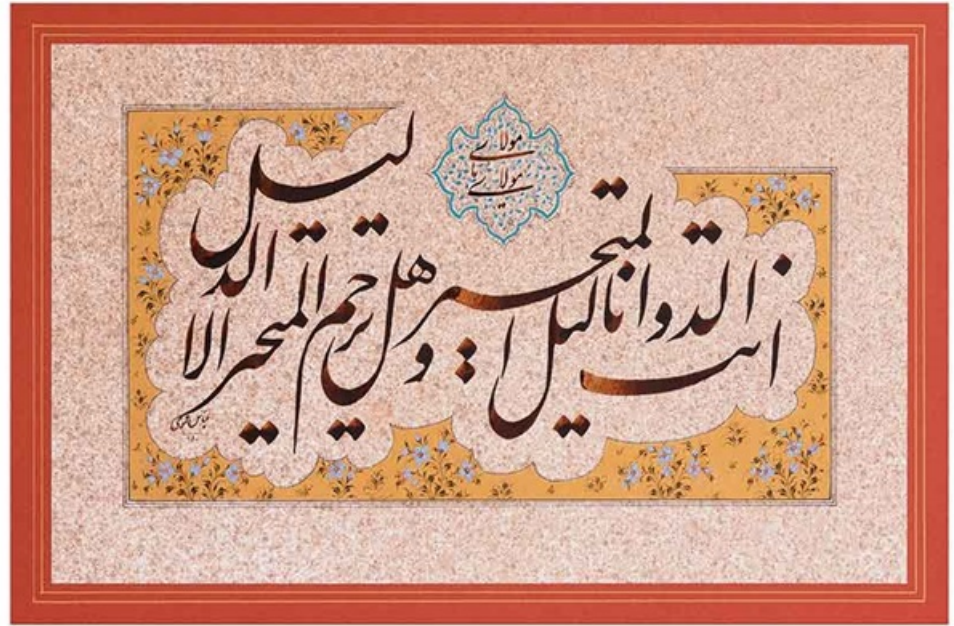 مولای
یا مولای
انت الدلیل و انا المتحیر و هل یرحم المتحیر الا الدلیل